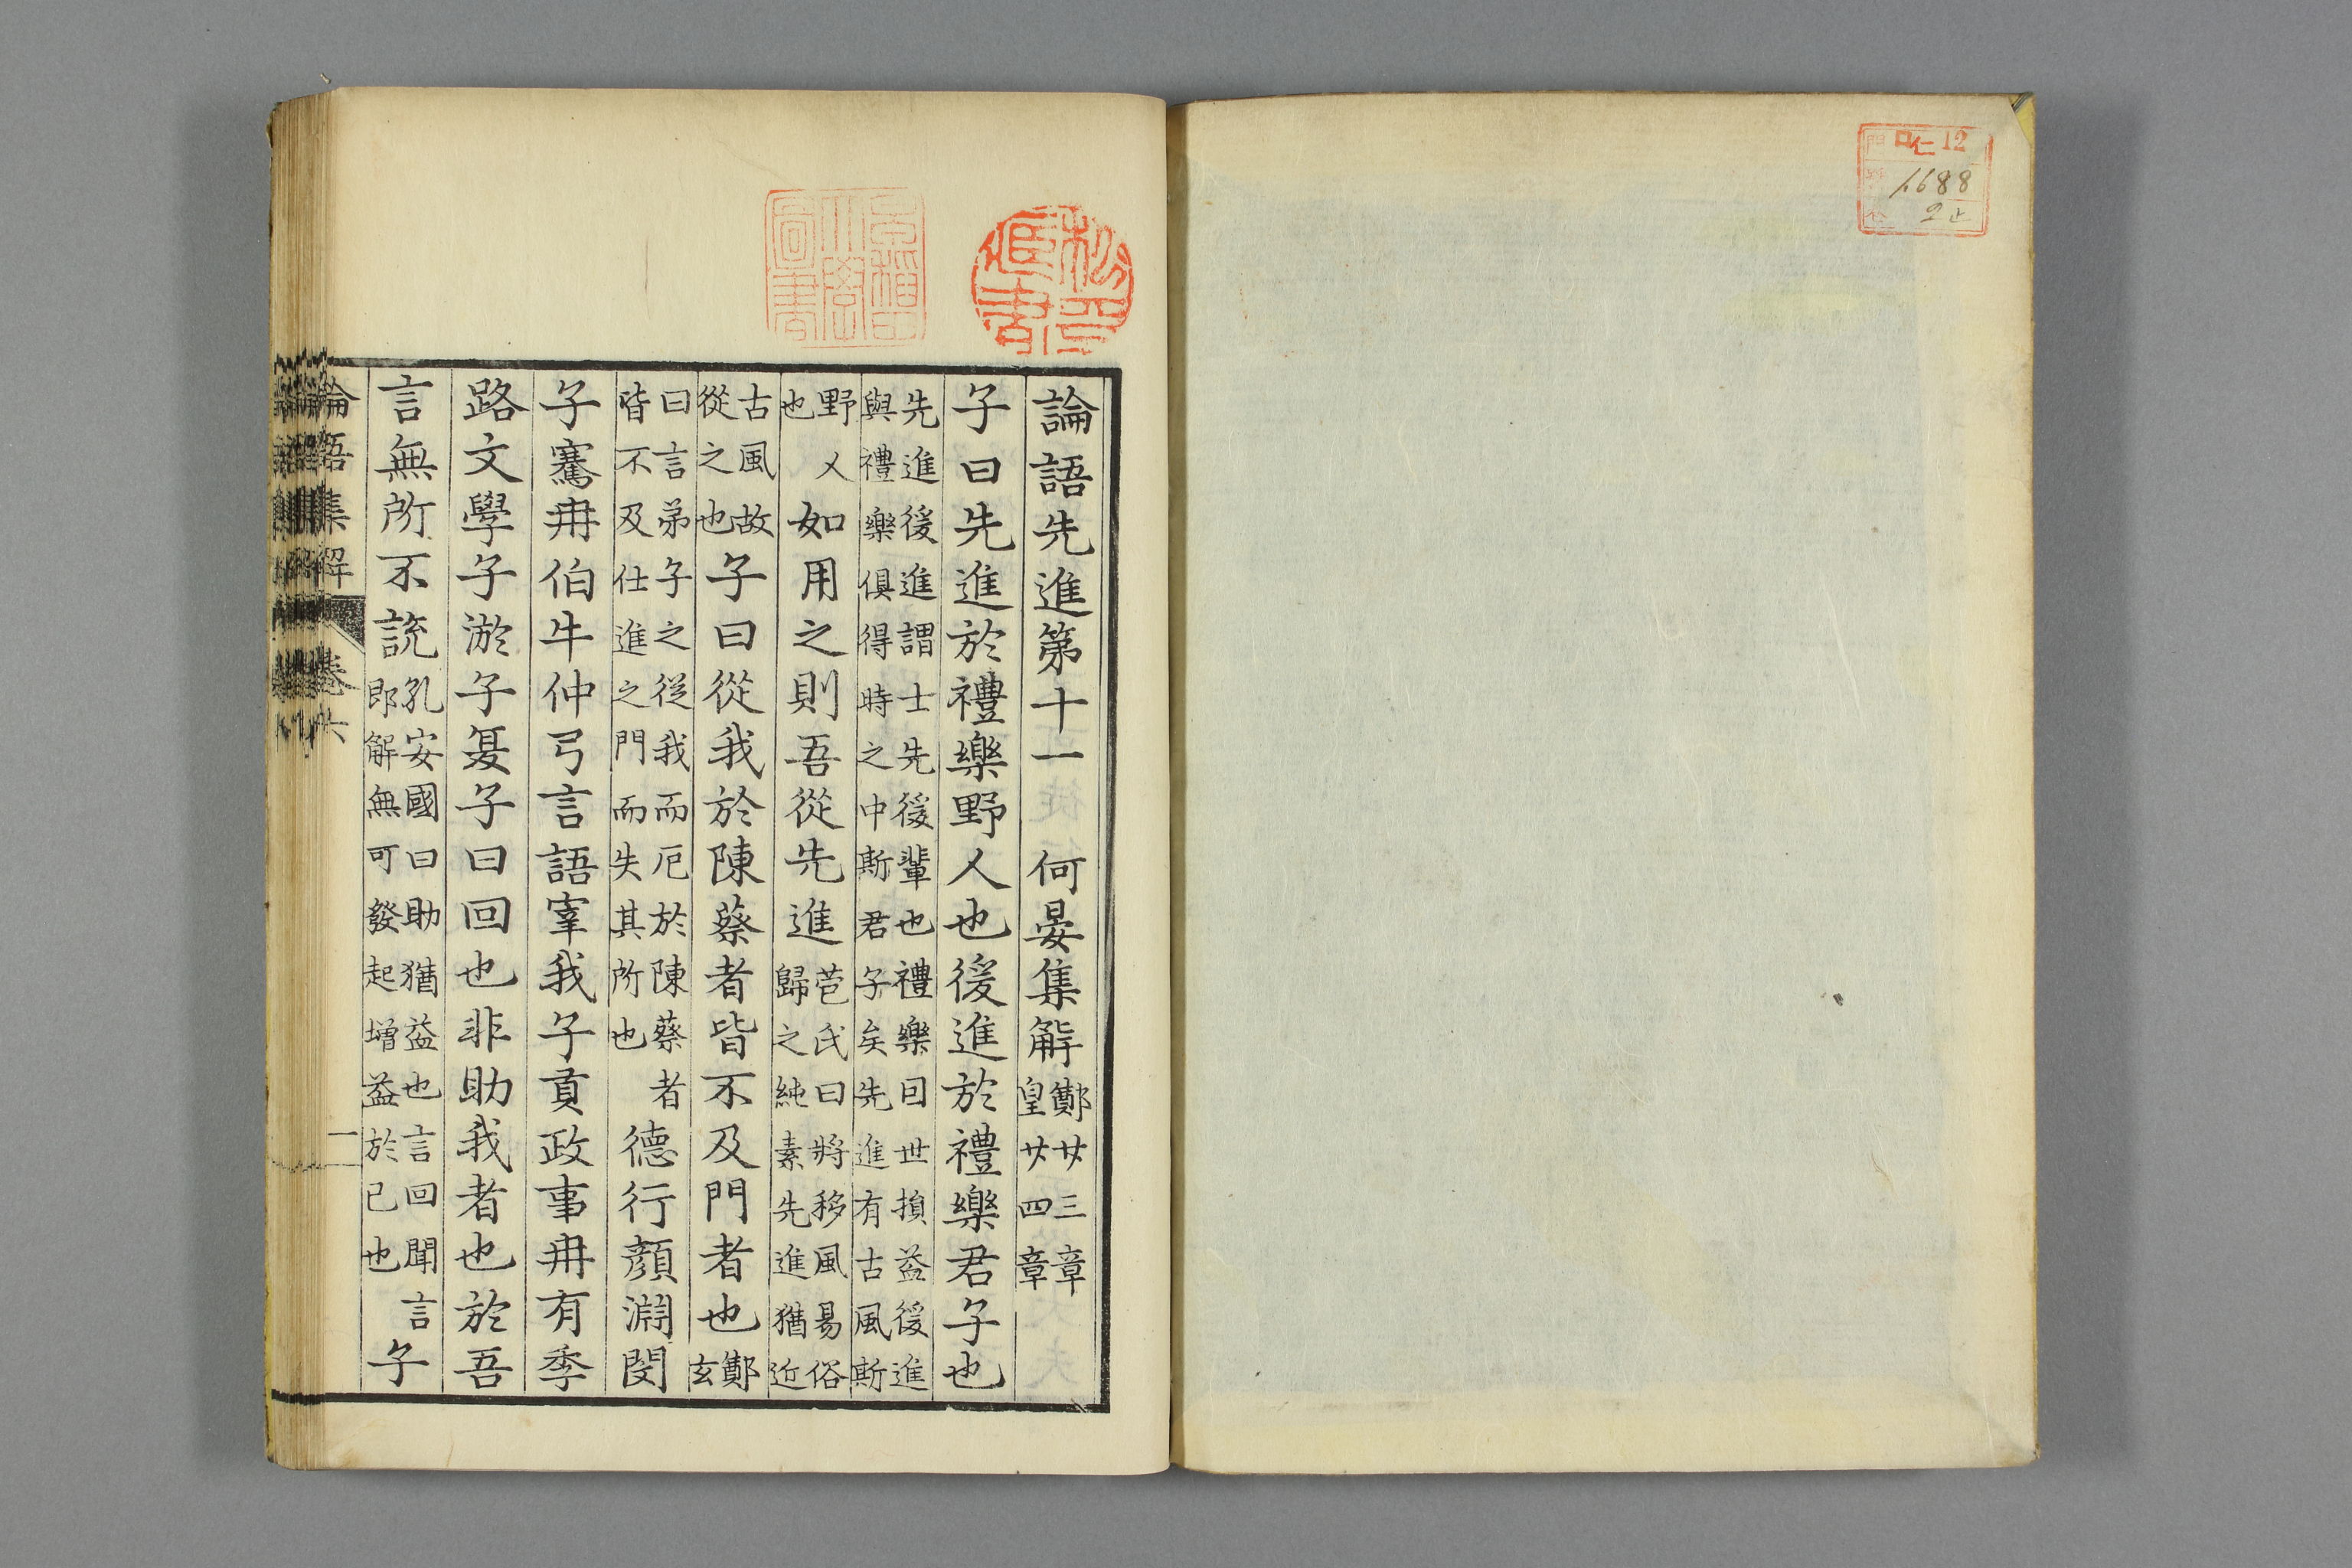 口仁12
1688
松邱
書
早稲田
大學
圖書
論語先進第十一 何晏集解鄭廿三章
皇廿四章
子曰先進於禮樂野人也後進於禮樂君子也
先進後進謂士先後輩也禮樂因世損益後進
與禮樂俱得時之中斯君子矣先進有古風斯
野人
也如用之則吾從先進苞氏曰將移風昜俗
歸之純素先進猶近
古風故
從之也子曰從我於陳蔡者皆不及門者也鄭
玄
曰言弟子之從我而厄於陳蔡者
皆不及仕進之門而失其所也德行顏淵閔
子騫冉伯牛仲弓言語宰我子貢政事冉有季
路文學子游子夏子曰回也非助我者也於吾
言無所不說孔安國曰助猶益也言回聞言
即解無可發起增益於己也子
論語集解 卷六 一